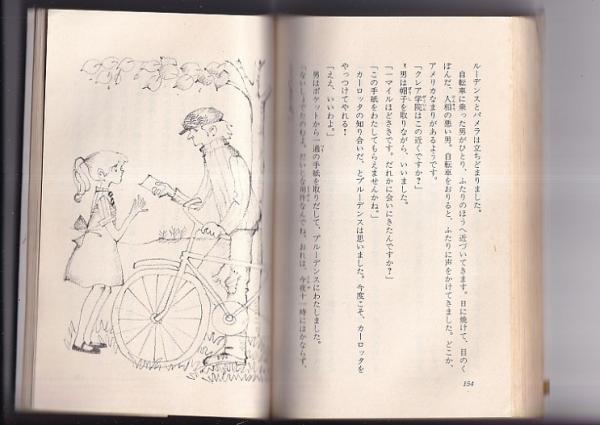 ルーデンスとパメラは立ちどまりました。
自転車に乗った男がひとり、ふたりのほうへ近づいてきます。日に焼けて、目のく
ぼんだ、人相の悪い男。自転車をおりると、ふたりに声をかけてきました。どこか、
アメリカなまりがあるようです。
「クレア学院はこの近くですか?」
男は帽子を取りながら、いいました。
「一マイルほどさきです。だれかに会いにきたんですか?」
「この手紙をわたしてもらえませんかね。」
カーロッタの知り合いだ、とプルーデンスは思いました。今度こそ、カーロッタを
やっつけてやれる!
「ええ、いいわよ。」
男はポケットから一通の手紙を取りだして、プルーデンスにわたしました。
「ないしょでたのむよ。だいじな用件なんでね。おれは、今夜十一時にはかならず、
154